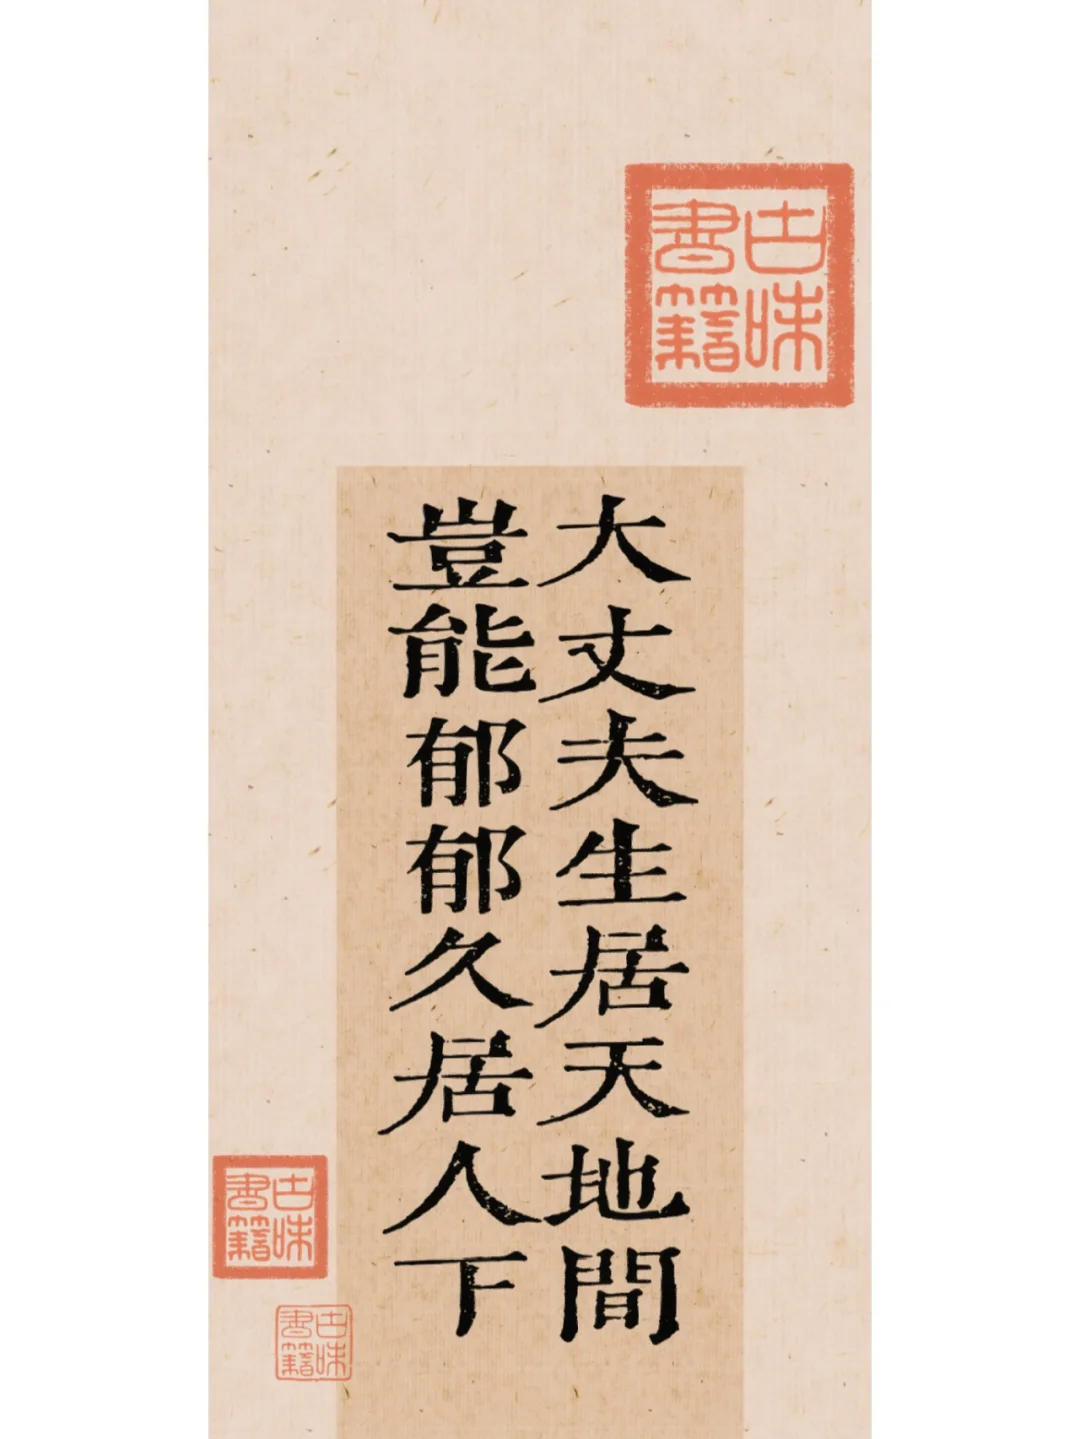 古味
書籍
大丈夫生居天地間
豈能郁郁久居人下
古味
書籍
古味
書籍